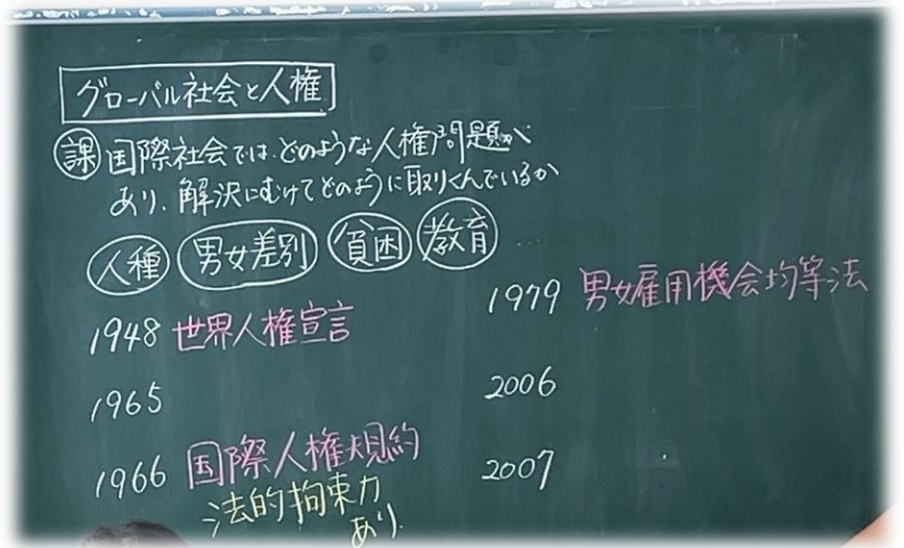 グローバル社会と人権
課 国際社会では、どのような人権問題が
あり、解決にむけてどのように取りくんでいるか
人種 男女差別 貧困 教育 …
1948 世界人権宣言
1965
1966 国際人権規約
法的拘束力
あり
1979 男女雇用機会均等法
2006
2007